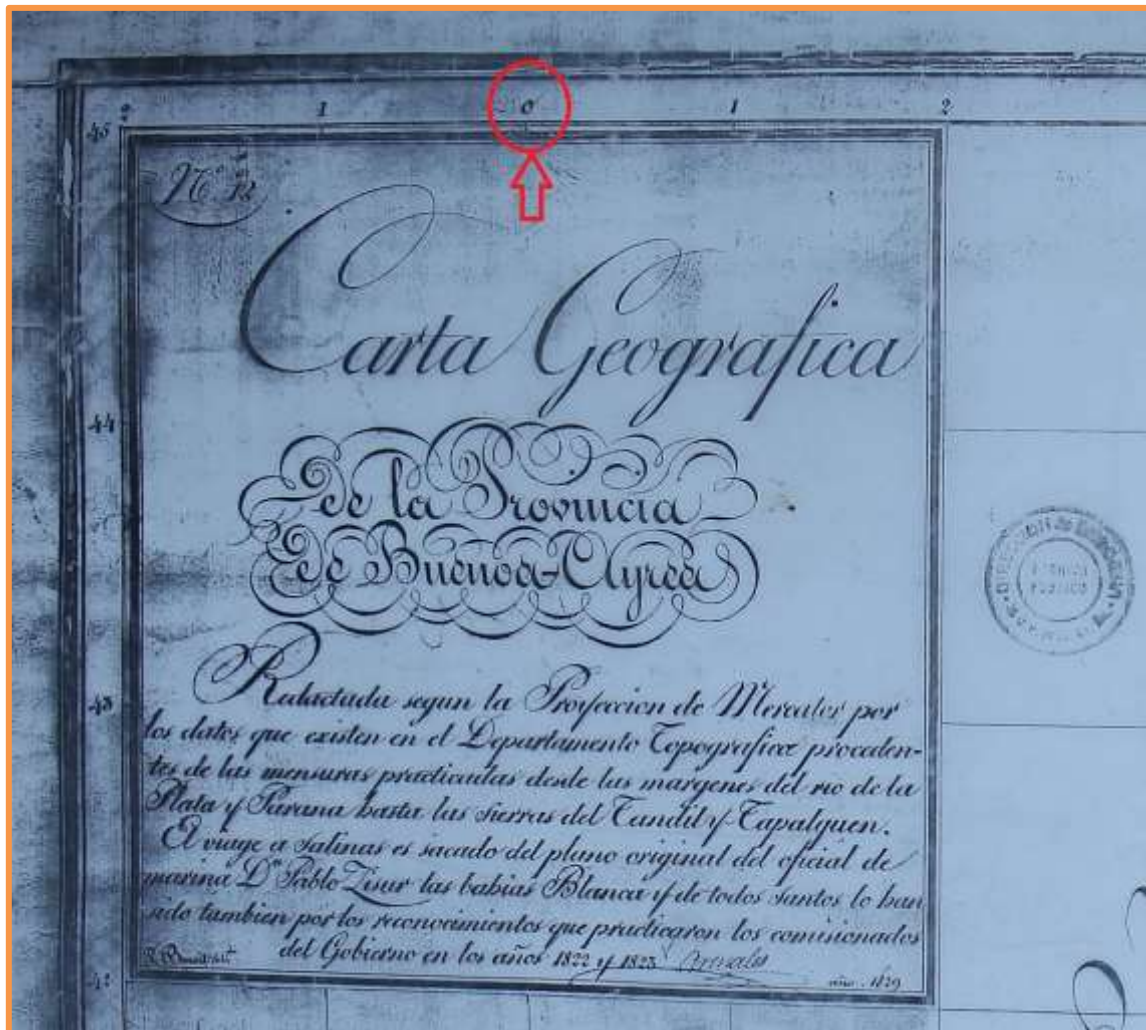 2 1 0 1 2
45
Nº. 12
Carta Geografica
44
de la Provincia
de Buenos-Ayres
43
Redactada segun la Proyeccion de Mercator por
los datos que existen en el Departamento Topografico proceden-
tes de las mensuras practicadas desde las margenes del rio de la
Plata y Parana hasta las sierras del Tandil y Tapalquen.
El viage a Salinas es sacado del plano original del oficial de
marina Dn Pablo Zisur las bahias Blanca y de todos santos lo han
sido tambien por los reconocimientos que practicaron los comisionados
del Gobierno en los años 1822 y 1823 Arenales
año. 1829
42